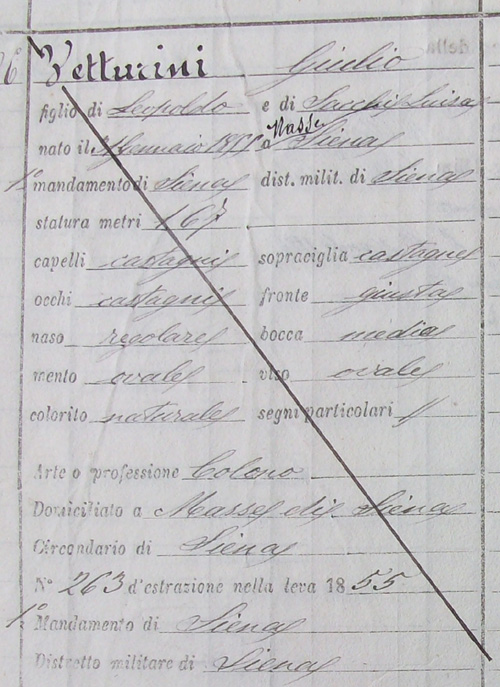 Vetturini Giulio
figlio di Leopoldo e di Sacchi Luisa
nato il Gennaio a Masse Siena
1° mandamento di Siena dist. milit. di Siena
statura metri 1 67
capelli castagni sopraciglia castagne
occhi castagni fronte giusta
naso regolare bocca media
mento ovale viso ovale
colorito naturale segni particolari //
Arte o professione Colono
Domiciliato a Masse di Siena
Circondario di Siena
N° 263 d'estrazione nella leva 18 55
1° Mandamento di Siena
Distretto militare di Siena